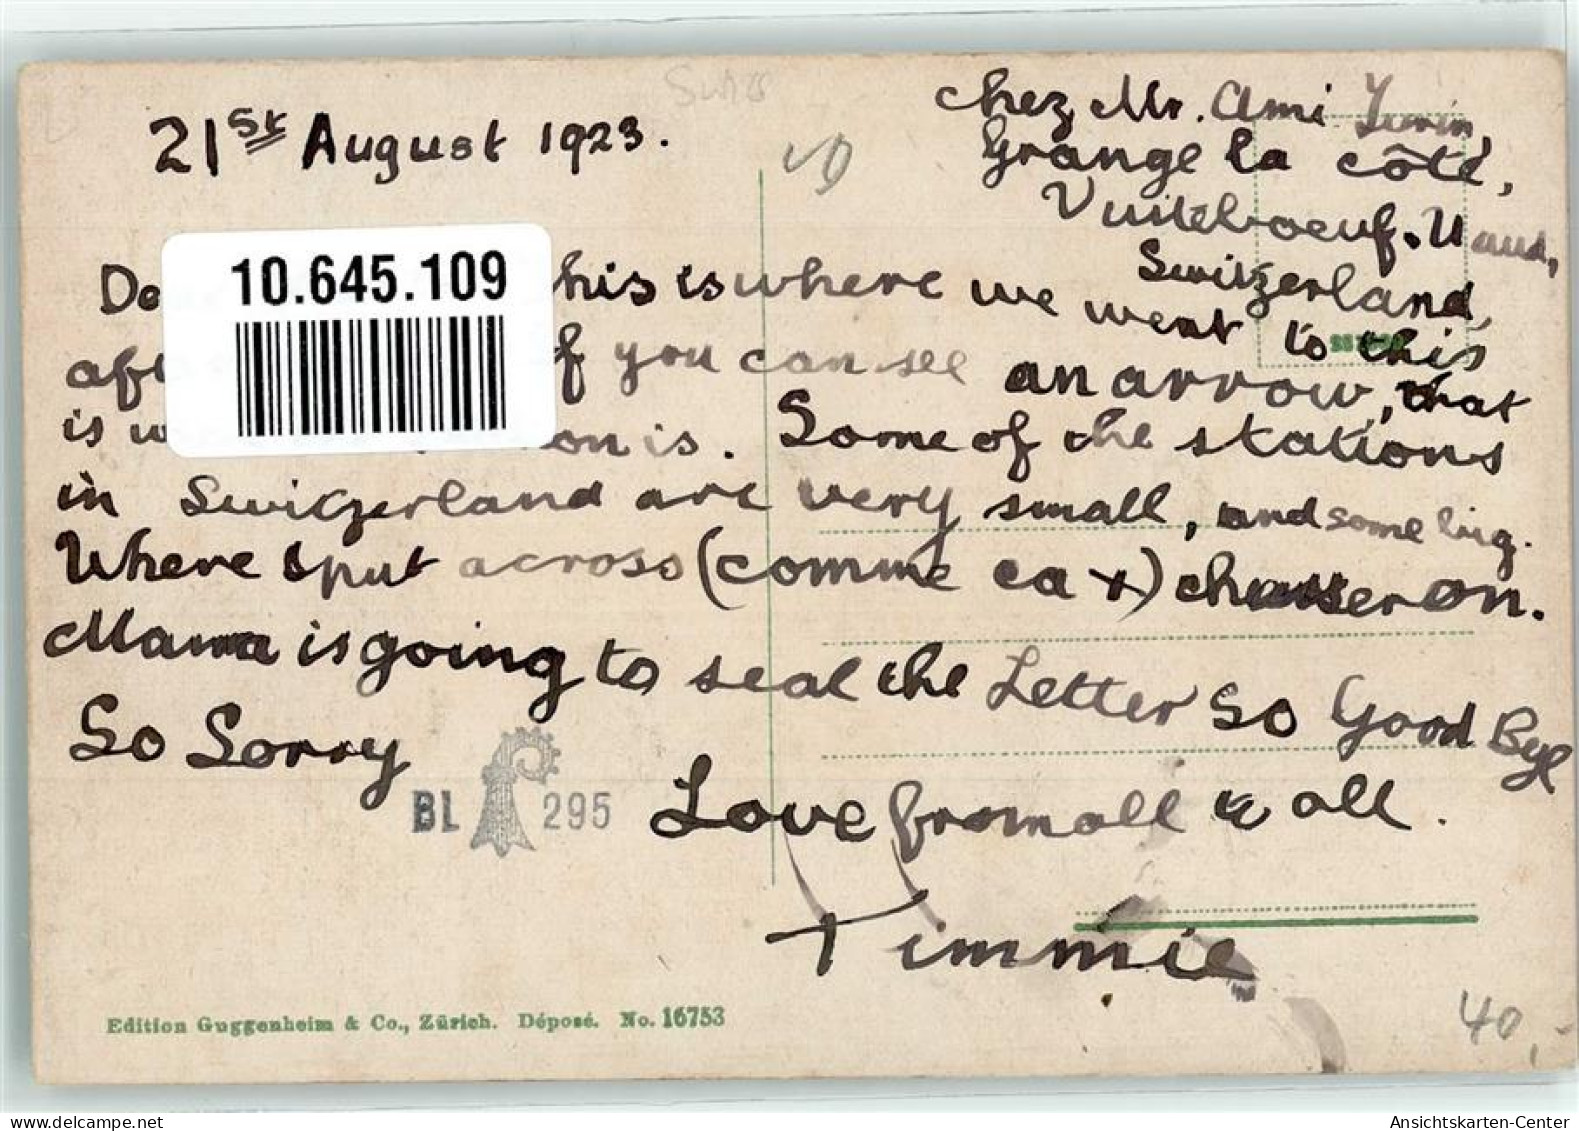 21st August 1923.
chez Mr. Ami
Grange la côté,
Vuiteboeuf. Vaud,
Switzerland,
10.645.109
this is where we went to this
if you can see an arrow, that
is on is. Some of the stations
in Switzerland are very small, and some big.
Where I put across (comme ca x) chausseron.
Mama is going to seal the Letter so Good Bye
So Sorry
BL 295
Love from all to all.
Timmie
Edition Guggenheim & Co., Zürich. Déposé. No. 16753
40,-
Ansichtskarten-Center